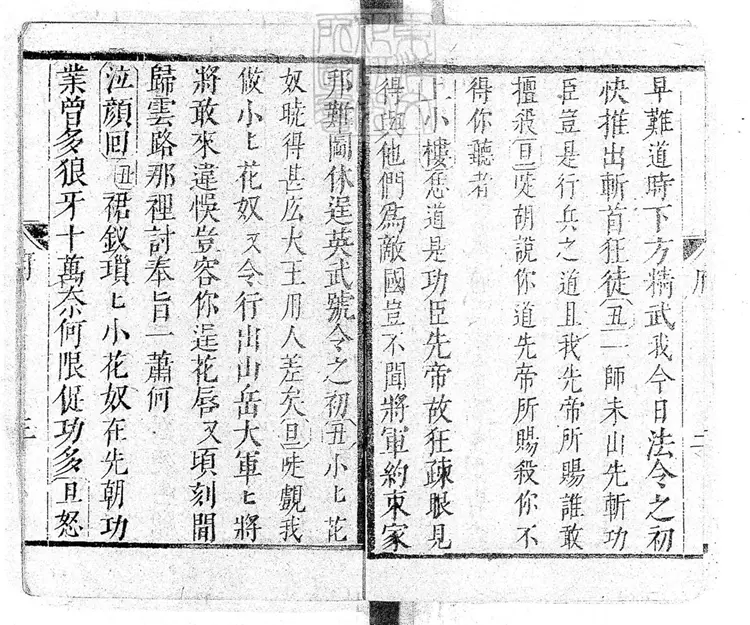 早難道時下方精武我今日法令之初
快推出斬首狂徒丑一師未山先斬功
臣豈是行兵之道且我先帝所賜誰敢
擅殺旦唗胡說你道先帝所賜殺你不
得你聽者
上小樓恁道是功臣先帝故狂疎眼見
得與他們為敵國豈不聞將軍約束家
邦難鬭休逞英武號令之初丑小匕花
奴曉得甚庅大王用人差矣旦唗覷我
做小匕花奴又令行出山岳大軍匕將
將敢來違悞豈容你逞花唇又頃刻間
歸雲路那裡討奉旨一蕭何
泣顏回丑裙釵瑣匕小花奴在先朝功
業曾多狼牙十萬奈何限促功多旦怒
三